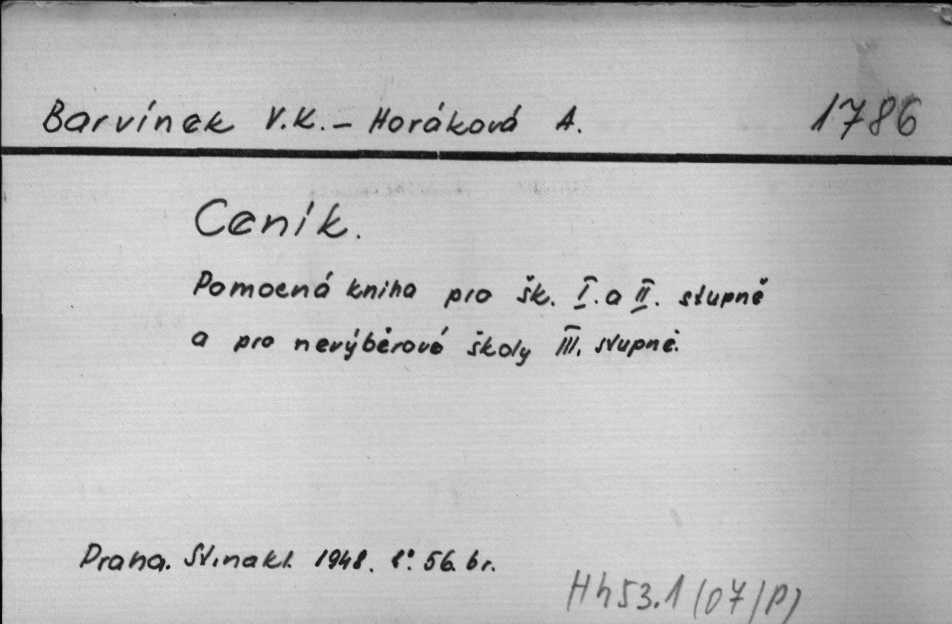 Barvínek V.K. – Horáková A. 1786
Ceník.
Pomocná kniha pro šk. I. a II. stupně
a pro nevýběrové školy III. stupně.
Praha. St. nakl. 1948. 8° 56. br.
Hh53.1(07/P)